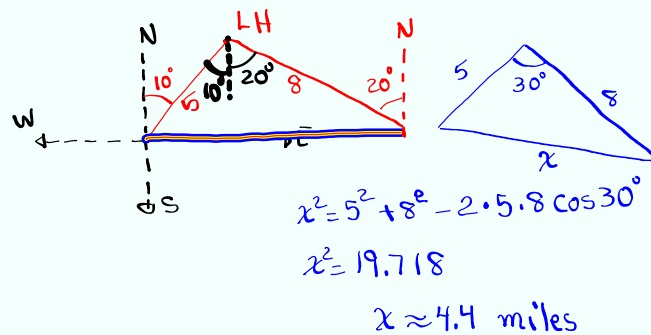 LH
N
N
10°
5
10°
20°
8
20°
W
S
5
30°
8
x
x² = 5² + 8² - 2·5·8 cos30°
x² = 19.718
x ≈ 4.4 miles